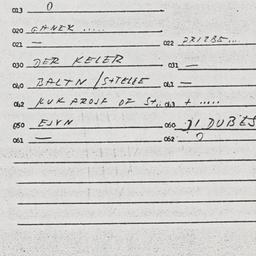 013 0
020 GANEK .....
021 — 022 PRIEBE...
030 DER KELER 031 —
040 BALTN / STELLE 041 —
042 KUK AROSF OF St.. 043 + .....
050 EJVN 060 DI DUBES
061 — 062 0